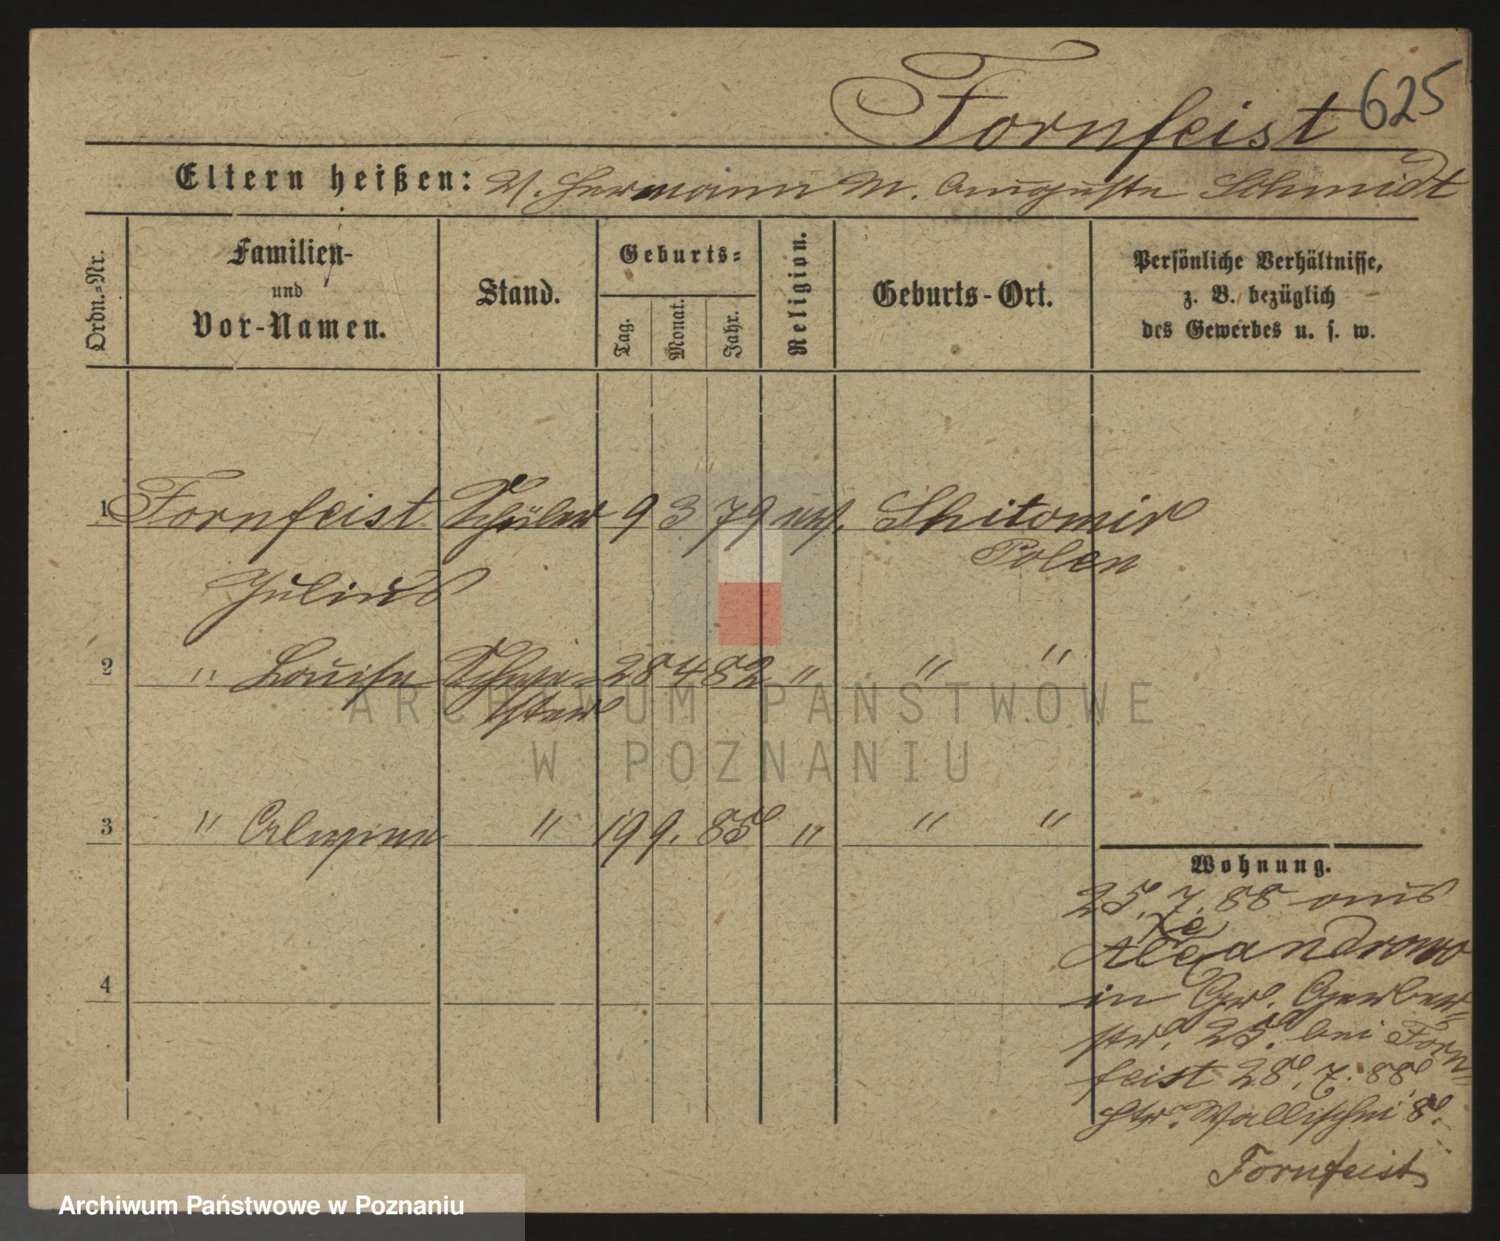 Fornfeist 625
Eltern heißen: V. Hermann M. Auguste Schmidt
Ordn.-Nr.
Familien- und Vor-Namen.
Stand.
Geburts-
Tag. Monat. Jahr.
Religion.
Geburts-Ort.
Persönliche Verhältnisse,
z. B. bezüglich
des Gewerbes u. s. w.
1 Fornfeist Schüler 9 3 79 ev. Shitomir
Polen
Julius
2 " Louise Schwe- 28 4 82 " " "
ster
3 " " 19 9. 85 " " "
4
Wohnung.
25. 7. 88 aus
Alexandrowo
in Gr. Gerber-
str. 25. bei Forn-
feist 28. 7. 88
Wallischei 8.
Fornfeist
ARCHIWUM PAŃSTWOWE
W POZNANIU
Archiwum Państwowe w Poznaniu